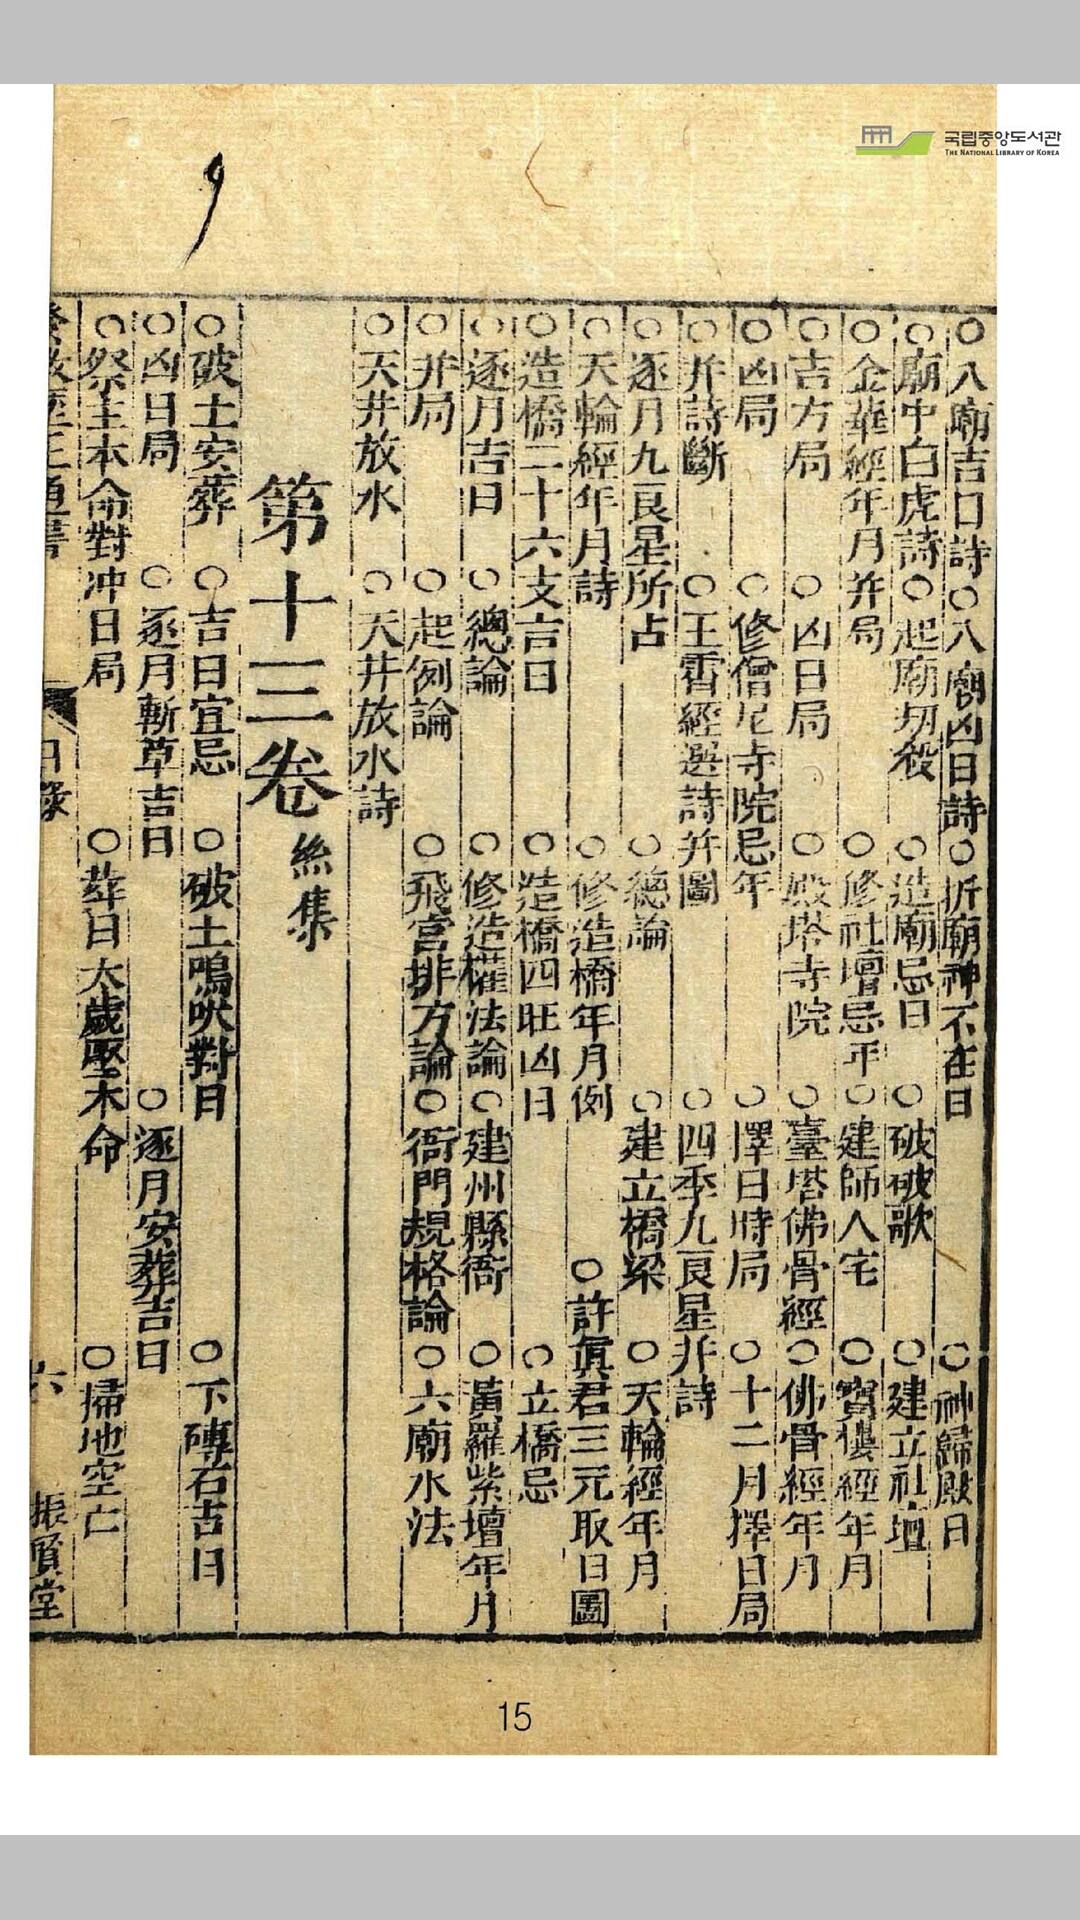 국립중앙도서관
THE NATIONAL LIBRARY OF KOREA
○八廟吉日詩○八廟凶日詩○折廟神不在日○神歸殿日
○廟中白虎詩○起廟刧殺○造廟忌日○破破歌○建立社壇
○金華經年月并局○修社壇忌年○建師人宅○寶樓經年月
○吉方局○凶日局○殿塔寺院○臺塔佛骨經○佛骨經年月
○凶局○修僧尼寺院忌年○擇日時局○十二月擇日局
○井詩斷○王霄經選詩并圖○四季九良星并詩
○逐月九良星所占○總論○建立橋梁○天輪經年月
○天輪經年月詩○修造橋年月例○許眞君三元取日圖
○造橋二十六支吉日○造橋四旺凶日○立橋忌
○逐月吉日○總論○修造權法論○建州縣衙○黃羅紫壇年月
○井局○起例論○飛宮排方論○衙門規格論○六廟水法
○天井放水○天井放水詩
第十三卷 絲集
○破土安葬○吉日宜忌○破土鳴吠對日○下磚石吉日
○凶日局○逐月斬草吉日○逐月安葬吉日
○祭主本命對冲日局○葬日太歲壓本命○掃地空亡
正通書 目錄 六 振賢堂
15